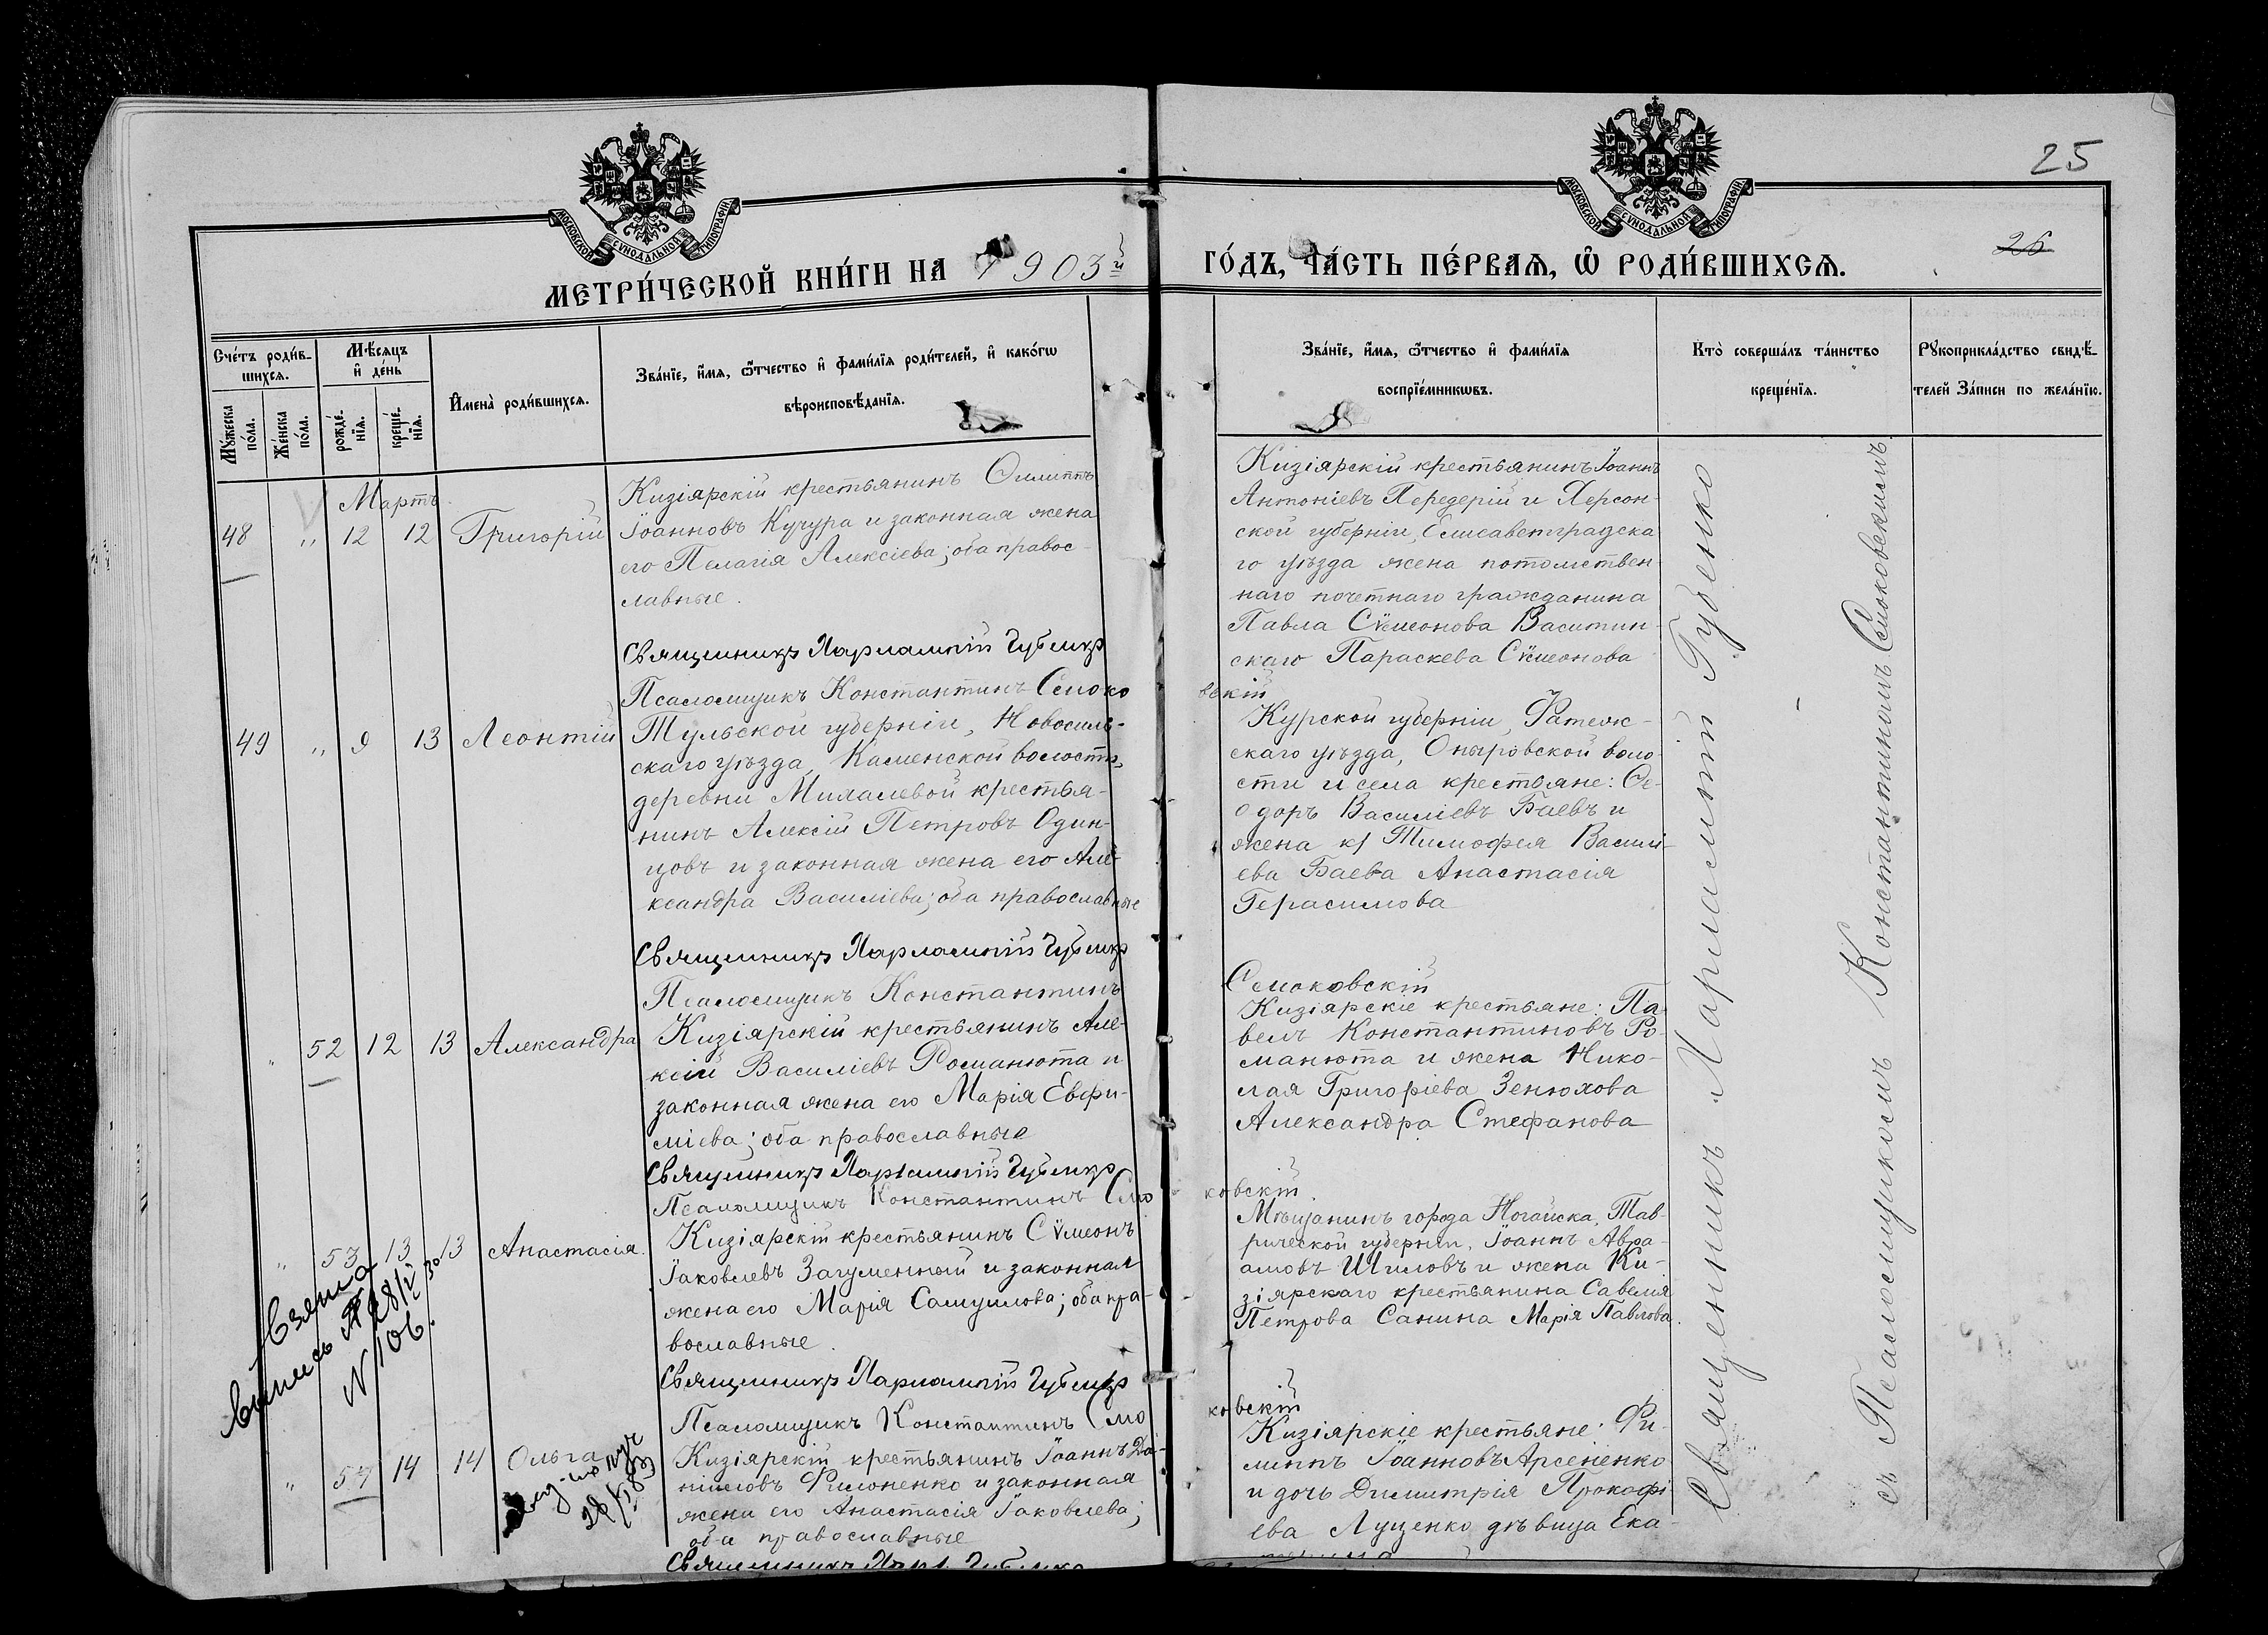 25
26
МОСКОВСКОЙ СУНОДАЛЬНОЙ ТИПОГРАФІИ
МОСКОВСКОЙ СУНОДАЛЬНОЙ ТИПОГРАФІИ
МЕТРИ́ЧЕСКОЙ КНИ́ГИ НА 1903й ГО́ДЪ, ЧА́СТЬ ПЕ́РВАЯ, Ѡ РОДИ́ВШИХСЯ.
Сче́тъ роди́в-
шихся.
Мѣ́сяцъ
и де́нь
Мꙋ́жеска
по́ла.
Же́нска
по́ла.
рожде́-
нїя.
креще́-
нїя.
И҆мена̀ роди́вшихся.
Зва́нїе, и҆́мя, ѻ҆́тчество и҆ фами́лїя роди́телей, и҆ како́гѡ
вѣроисповѣ́данїя.
Зва́нїе, и҆́мя, ѻ҆́тчество и҆ фами́лїя
воспрїе́мникѡвъ.
Кто̀ соверша́лъ та́инство
креще́нїя.
Рꙋкоприкла́дство свидѣ́-
телей За́писи по жела́нїю.
Мартъ
48 " 12 12 Григорій
Кизіярскій крестьянинъ Филиппъ
Іоанновъ Кучура и законная жена
его Пелагія Алексіева; оба правос-
лавные.
Священникъ Харлампій Губенко
Псаломщикъ Константинъ Смоко
вскій
Кизіярскій крестьянинъ Іоаннъ
Антоніевъ Передерій и Херсон-
ской губерніи, Елисаветградска
го уѣзда жена потомствен-
наго почетнаго гражданина
Павла Сѵмеонова Васитин-
скаго Параскева Сѵмеонова
49 " 9 13 Леонтій
Тульской губерніи, Новосиль-
скаго уѣзда, Каменской волости,
деревни Михалевой крестья-
нинъ Алексій Петровъ Один-
цовъ и законная жена его Але-
ксандра Василіева; оба православные
Священникъ Харлампій Губенко
Псаломщикъ Константинъ
Смоковскій
Курской губерніи, Фатеж-
скаго уѣзда, Оныровской воло-
сти и села крестьяне: Ѳе-
одоръ Василіевъ Баевъ и
жена кр Тимофея Васили-
ева Баева Анастасія
Герасимова
" 52 12 13 Александра
Кизіярскій крестьянинъ Але-
ксій Василіевъ Романюта и
законная жена его Марія Евфи-
міева; оба православные
Священникъ Харлампій Губенко
Псаломщикъ Константинъ Смо
ковскій
Кизіярскіе крестьяне: Па-
велъ Константиновъ Ро-
манюта и жена Нико-
лая Григоріева Зенюхова
Александра Стефанова
" 53 13 13 Анастасія.
Кизіярскій крестьянинъ Сѵмеонъ
Іаковлевъ Загуменный и законная
жена его Марія Самуилова; оба пра-
вославные.
Священникъ Харлампій Губенко
Псаломщикъ Константинъ Смо
ковскій
Мѣщанинъ города Ногайска, Тав-
рической губерніи, Іоаннъ Авра-
амовъ Шиловъ и жена Ки-
зіярскаго крестьянина Савелія
Петрова Санина Марія Павлова.
Взята
выпись
N 106.
" 54 14 14 Ольга
Кизіярскій крестьянинъ Іоаннъ Да-
ніиловъ Филоненко и законная
жена его Анастасія Іаковлева;
оба православные
Священникъ Харл. Губенко
Кизіярскіе крестьяне: Фи-
липпъ Іоанновъ Арсененко
и дочь Димитрія Прокофі
ева Луценко дѣвица Ека-
Священникъ Харлампій Губенко
съ Псаломщикомъ Константиномъ Смоковскимъ